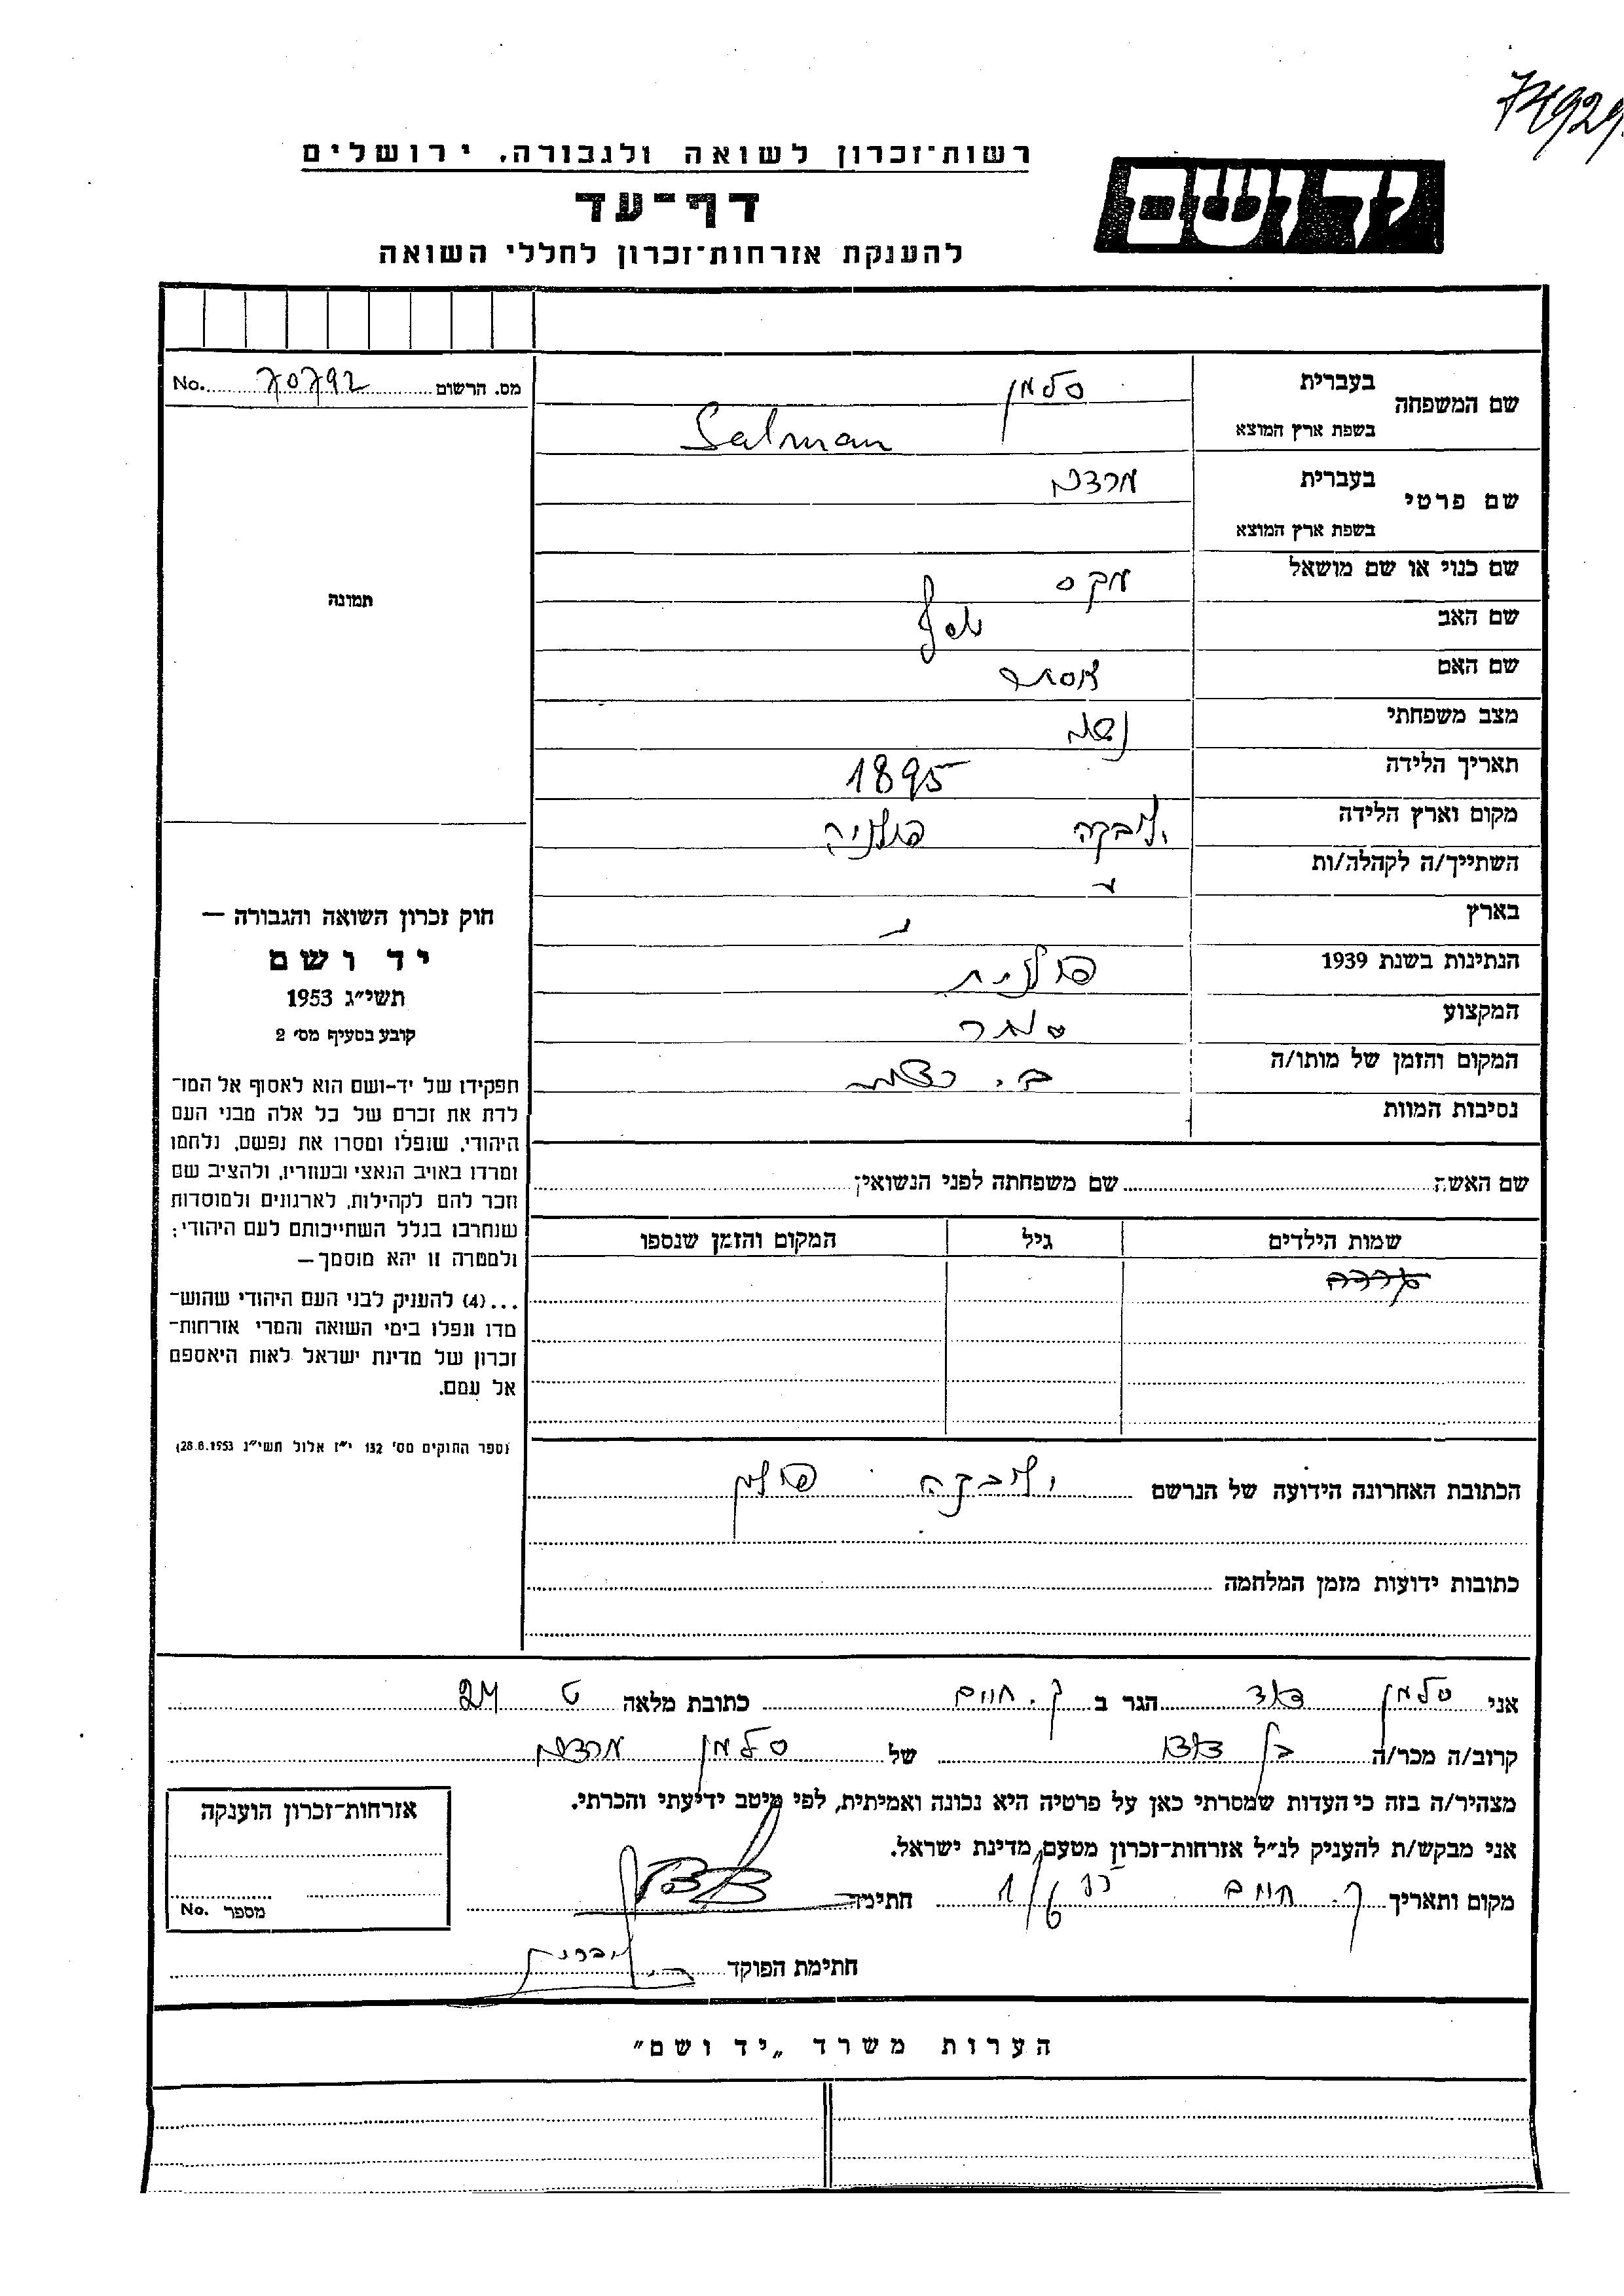 74929
רשות־זכרון לשואה ולגבורה, ירושלים
יד ושם
דף־עד
להענקת אזרחות־זכרון לחללי השואה
מס. הרשום 70792 No.
שם המשפחה
בעברית סלמן
בשפת ארץ המוצא Salman
שם פרטי
בעברית
בשפת ארץ המוצא
שם כנוי או שם מושאל מקס
שם האב יוסף
שם האם אסתר
מצב משפחתי נשוי
תאריך הלידה 1895
מקום וארץ הלידה פולניה
השתייך/ה לקהלה/ות
בארץ
הנתינות בשנת 1939 פולנית
המקצוע סוחר
המקום והזמן של מותו/ה
נסיבות המוות
תמונה
חוק זכרון השואה והגבורה —
יד ושם
תשי״ג 1953
קובע בסעיף מס׳ 2
תפקידו של יד-ושם הוא לאסוף אל המו־
לדת את זכרם של כל אלה מבני העם
היהודי, שנפלו ומסרו את נפשם, נלחמו
ומרדו באויב הנאצי ובעוזריו, ולהציב שם
וזכר להם לקהילות, לארגונים ולמוסדות
שנחרבו בגלל השתייכותם לעם היהודי;
ולמטרה זו יהא מוסמך—
...(4) להעניק לבני העם היהודי שהוש־
מדו ונפלו בימי השואה והמרי אזרחות־
זכרון של מדינת ישראל לאות היאספם
אל עמם.
(ספר החוקים מס׳ 132 י״ז אלול תשי״ג 28.8.1953)
שם האשה שם משפחתה לפני הנשואין
שמות הילדים גיל המקום והזמן שנספו
הכתובת האחרונה הידועה של הנרשם פולין
כתובות ידועות מזמן המלחמה
אני סלמן דוד הגר ב ק. חיים כתובת מלאה ט 24
קרוב/ה מכר/ה בן דודו של סלמן
מצהיר/ה בזה כי העדות שמסרתי כאן על פרטיה היא נכונה ואמיתית, לפי מיטב ידיעתי והכרתי.
אני מבקש/ת להעניק לנ״ל אזרחות־זכרון מטעם מדינת ישראל.
מקום ותאריך ק. חיים חתימה
חתימת הפוקד
אזרחות־זכרון הוענקה
מספר No.
הערות משרד „יד ושם״